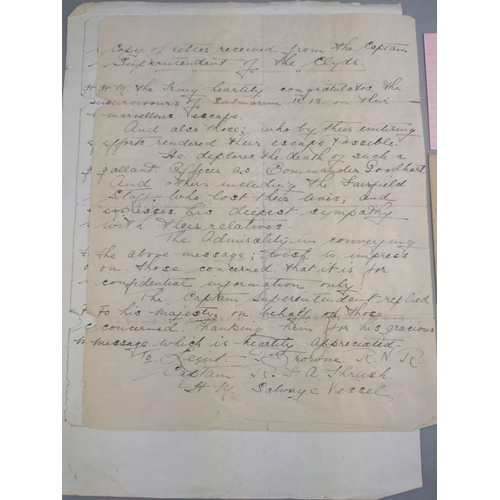 Copy of letter received from the Captain
Superintendent of the "Clyde.
H. M. the King heartily congratulates the
survivours of Submarine K 13. on their
marvellous escape.
And also those; who by their untiring
efforts rendered their escape possible.
He deplores the death of such a
gallant Officer as Commander Goodhart
And others including the Fairfield
Staff. who lost their lives; and
expresses his deepest sympathy
with their relatives.
The Admirality in conveying
the above message; wish to impress
on those concerned that it is for
confidential information only
The Captain Superentendent replied
To his majesty, on behalf of those
concerned thanking him for his gracious
message which is heartily appreciated.
To Leiut R. N. R
Captain R. F. A Thrush
H. M. Salvage Vessel